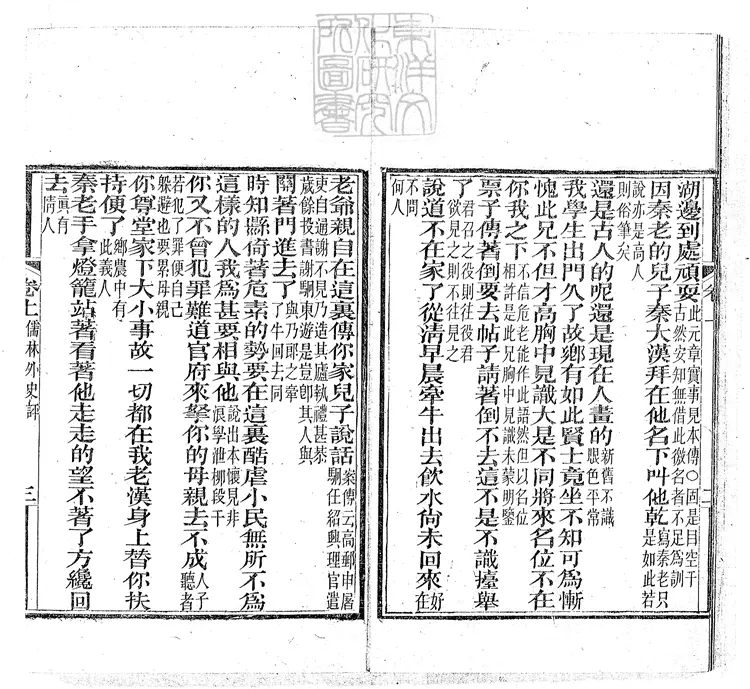 東洋文
化研究
所圖書
卷上
二
湖邊到處頑耍 此元章實事見本傳○固是目空千
古然安知無借此徵名者不足為訓
因秦老的兒子秦大漢拜在他名下叫他乾 寫秦老只
是如此若
說亦是高人
則俗筆矣
還是古人的呢還是現在人畫的 新舊不識
眼色平常
我學生出門久了故鄉有如此賢士竟坐不知可為慚
愧此兄不但才高胸中見識大是不同將來名位不在
你我之下 不信危老能作此語然但以名位
相許是此兄胸中見識未蒙明鑒
票子傳著倒要去帖子請著倒不去這不是不識擡舉
了 君召之役則往役君
欲見之則不往見之
說道不在家了從清早晨牽牛出去飲水尚未回來 好
在
不問
何人
老爺親自在這裏傳你家兒子說話 案傳云高郵申屠
駉任紹興理官遣
吏自通謝不見乃造其廬執禮甚恭
歲餘投書謝駉東遊是豈卽其人與
關著門進去了 與乃郎之牽
了牛回去同
時知縣倚著危素的勢要在這裏酷虐小民無所不為
這樣的人我為甚要相與他 說出本懷見非
浪學泄柳段干
你又不曾犯罪難道官府來拏你的母親去不成 人子
聽者
若犯了罪便自己
躲避也要累母親
你尊堂家下大小事故一切都在我老漢身上替你扶
持便了 鄉農中有
此義人
秦老手拿燈籠站著看著他走走的望不著了方纔回
去 眞有
情人
卷上 儒林外史評
三